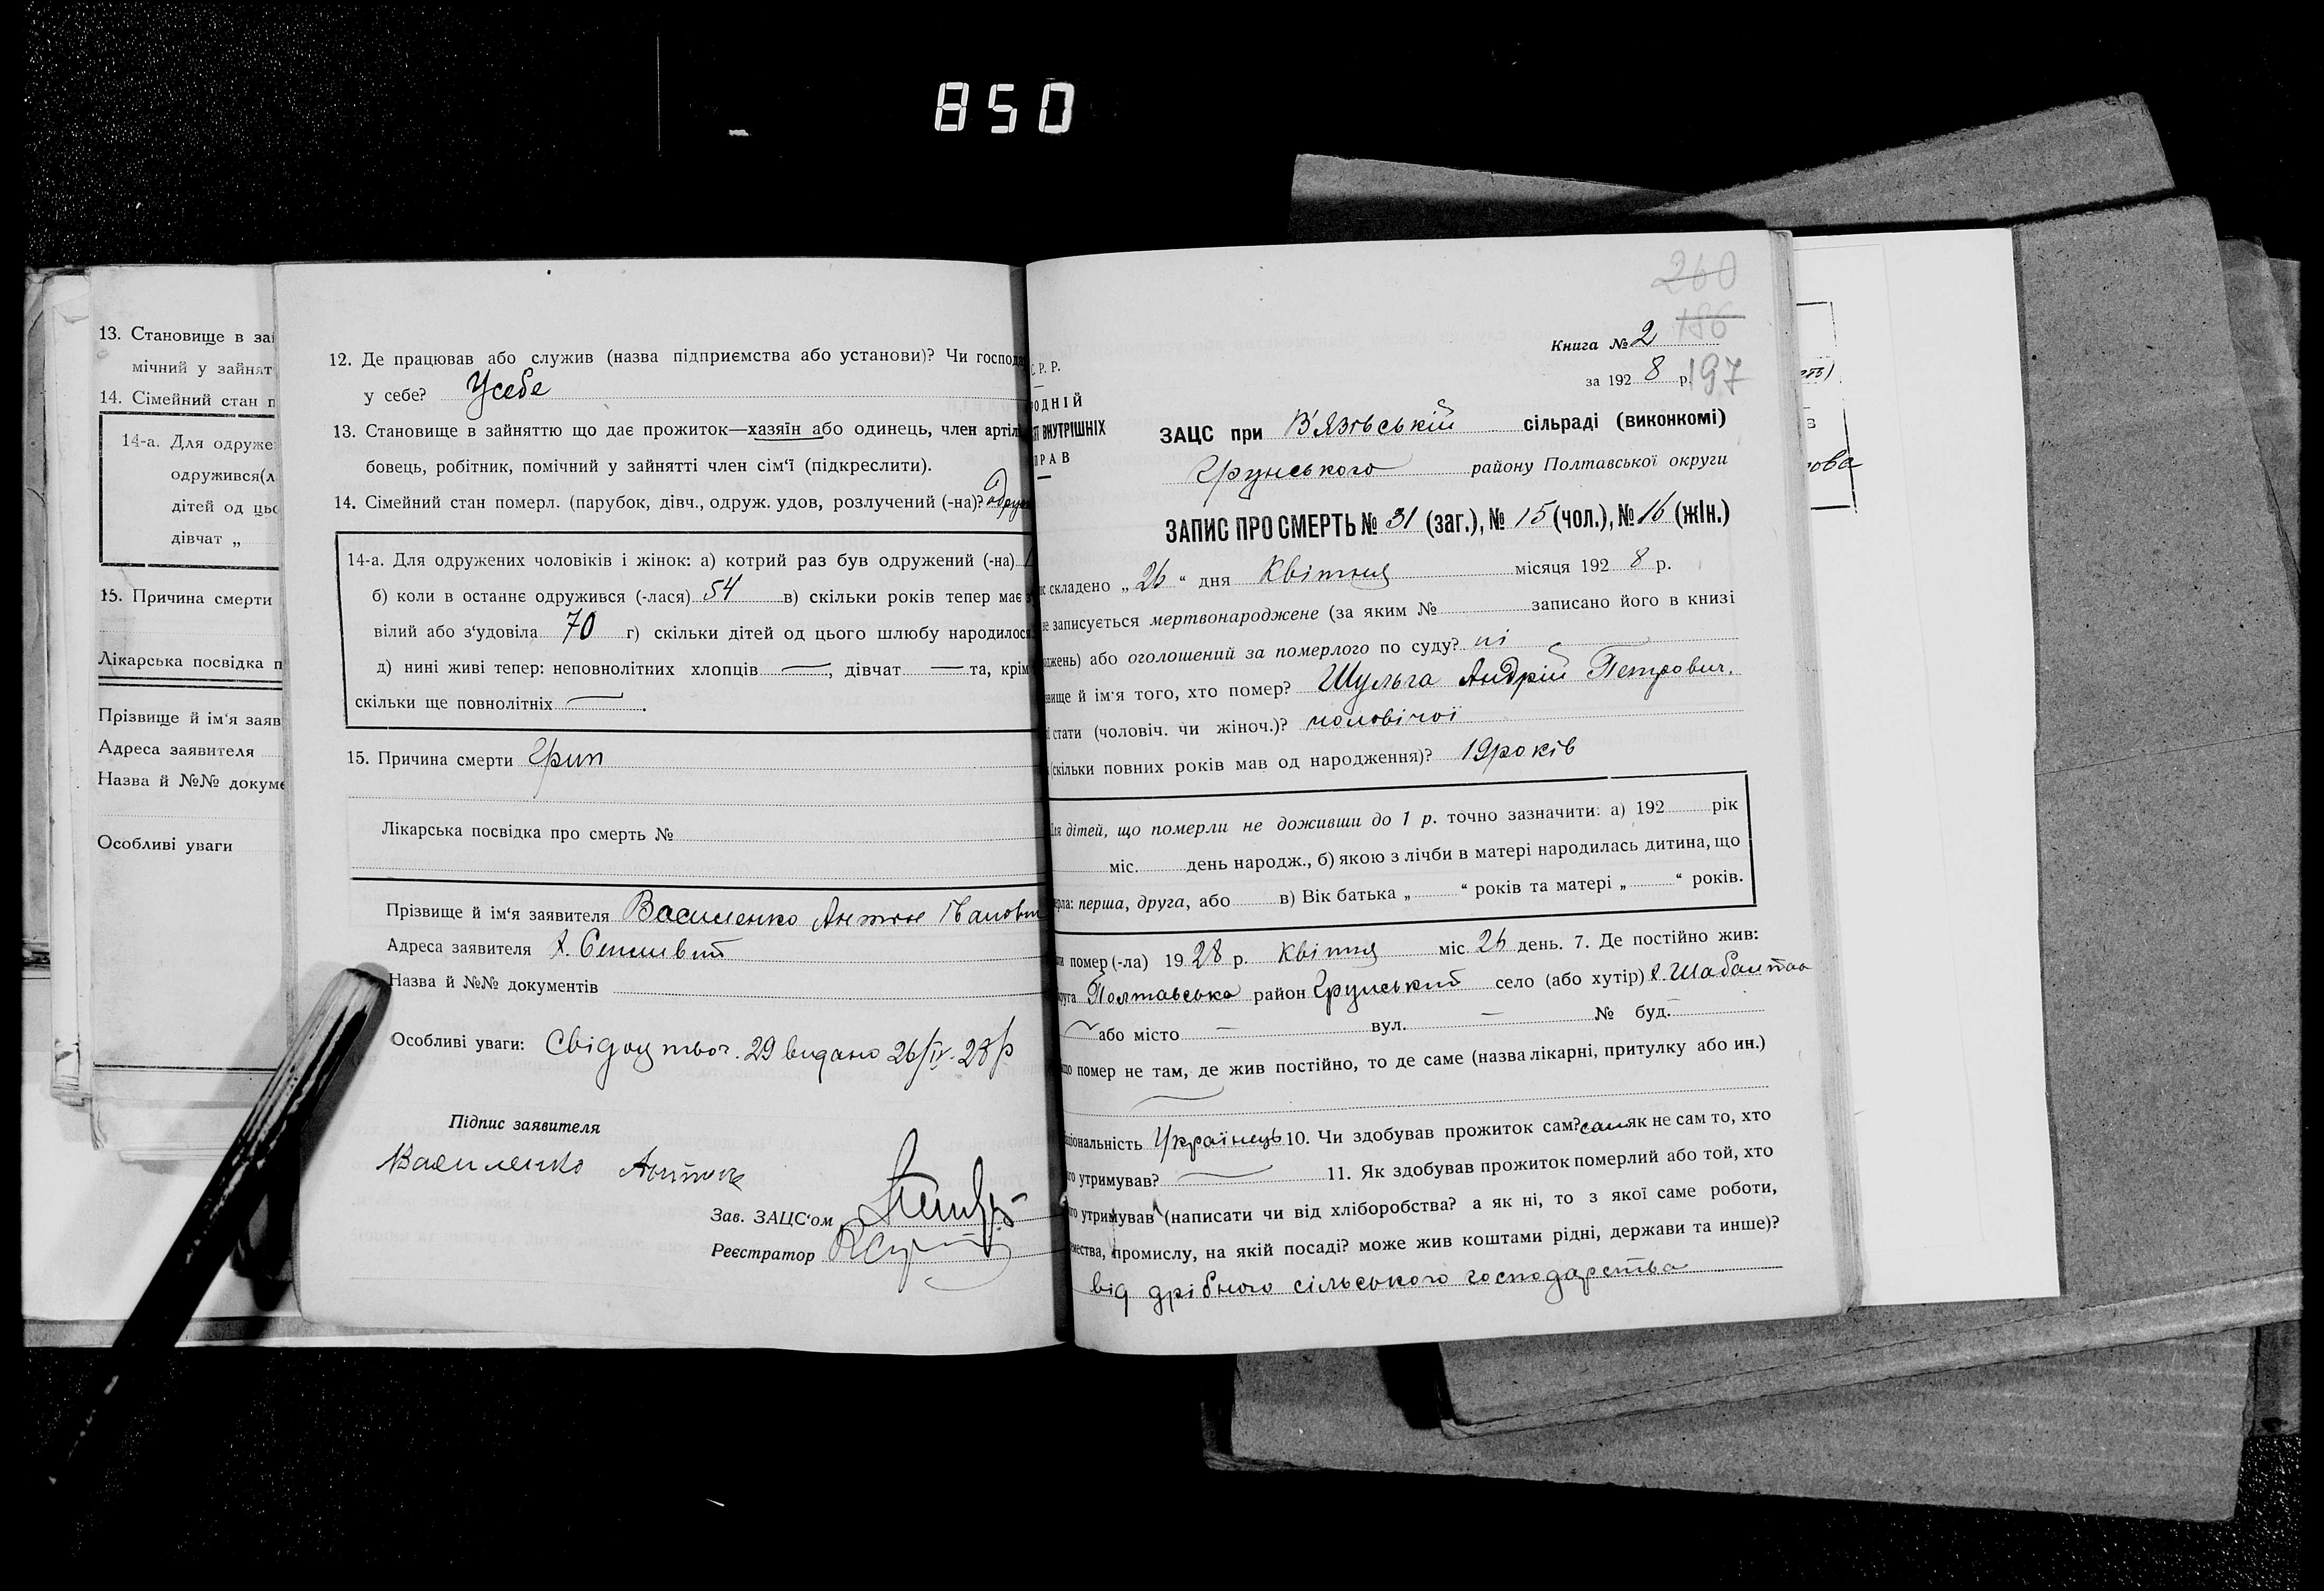 850
13. Становище в зай
мічний у зайнят
14. Сімейний стан п
14-а. Для одруже
одружився(л
дітей од цьо
дівчат „
15. Причина смерти
Лікарська посвідка п
Прізвище й ім'я заяв
Адреса заявителя
Назва й №№ докуме
Особливі уваги
12. Де працював або служив (назва підприємства або установи)? Чи господа
у себе? Усебе
13. Становище в зайняттю що дає прожиток—хазяїн або одинець, член артіл
бовець, робітник, помічний у зайнятті член сім'ї (підкреслити).
14. Сімейний стан померл. (парубок, дівч., одруж. удов, розлучений (-на)? одруж
14-а. Для одружених чоловіків і жінок: а) котрий раз був одружений (-на)
б) коли в останнє одружився (-лася) 54 в) скільки років тепер має з
вілий або з'удовіла 70 г) скільки дітей од цього шлюбу народилося
д) нині живі тепер: неповнолітних хлопців —, дівчат — та, крім
скільки ще повнолітніх — .
15. Причина смерти Грип
Лікарська посвідка про смерть №
Прізвище й ім'я заявителя Василенко Антон Іванович
Адреса заявителя х.
Назва й №№ документів
Особливі уваги: Свідоцтво ч. 29 видано 26/IV-28 р
Підпис заявителя
Василенко Антон
Зав. ЗАЦС'ом
Реєстратор
260
186
Книга № 2
за 192 8 р. 197
С. Р. Р.
РОДНІЙ
ВНУТРІШНІХ
ПРАВ
ЗАЦС при В'язівській сільраді (виконкомі)
Грунського району Полтавської округи
ЗАПИС ПРО СМЕРТЬ № 31 (заг.), № 15 (чол.), № 16 (жін.)
складено „26“ дня Квітня місяця 192 8 р.
записується мертвонароджене (за яким № записано його в книзі
джень) або оголошений за померлого по суду? ні
вище й ім'я того, хто помер? Шульга Андрій Петрович.
стати (чоловіч. чи жіноч.)? чоловічої
(скільки повних років мав од народження)? 19 років
Для дітей, що померли не доживши до 1 р. точно зазначити: а) 192 рік
міс. день народж., б) якою з лічби в матері народилась дитина, що
рла: перша, друга, або в) Вік батька „ “ років та матері „ “ років.
помер (-ла) 19 28 р. Квітня міс. 26 день. 7. Де постійно жив:
руга Полтавська район Грунський село (або хутір) х.
або місто — вул. — № буд.
що помер не там, де жив постійно, то де саме (назва лікарні, притулку або ин.)
ціональність Українець 10. Чи здобував прожиток сам? сам як не сам то, хто
го утримував? 11. Як здобував прожиток померлий або той, хто
го утримував (написати чи від хліборобства? а як ні, то з якої саме роботи,
мества, промислу, на якій посаді? може жив коштами рідні, держави та инше)?
від дрібного сільського господарства